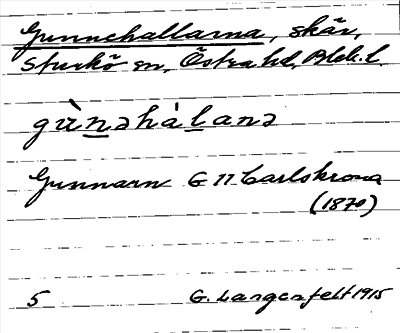 Gunnehallarna, skär,
Sturkö sn, Östra hd, Blek. l.
gùnəhàlanə
Gunnarn G 11 Carlskrona
(1870)
5 G. Langenfelt 1915